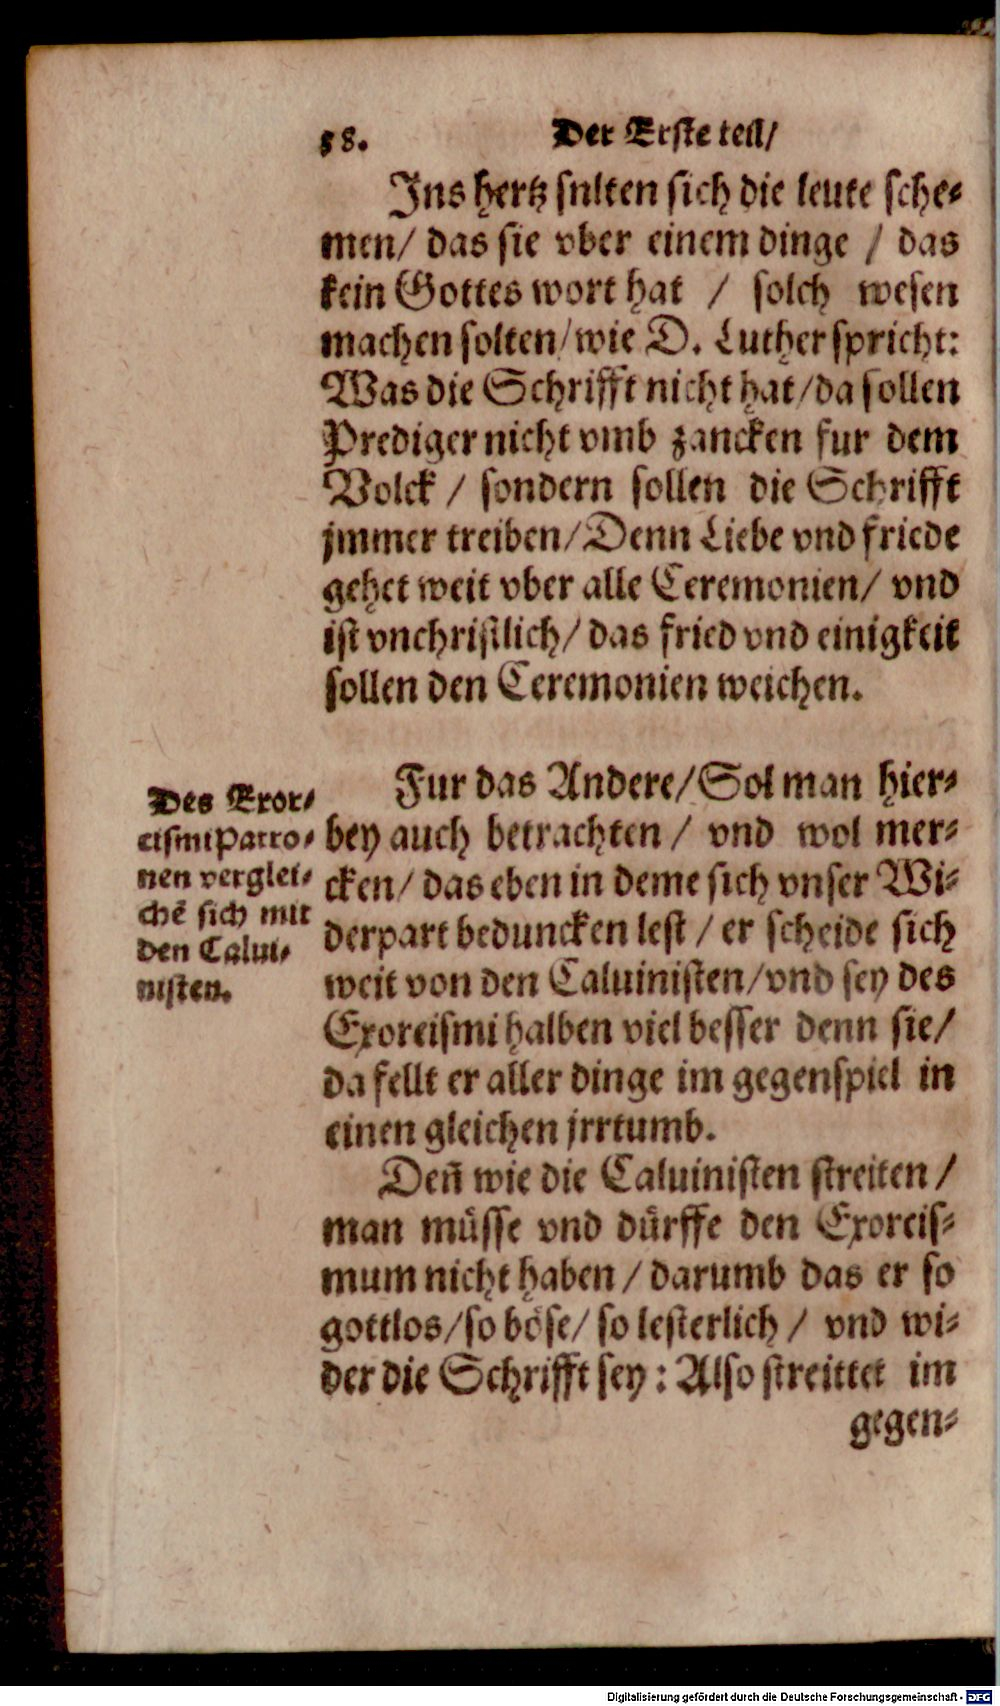 58. Der Erste teil/
Ins hertz snlten sich die leute sche-
men/ das sie vber einem dinge / das
kein Gottes wort hat / solch wesen
machen solten/wie D. Luther spricht:
Was die Schrifft nicht hat/da sollen
Prediger nicht vmb zancken fur dem
Volck / sondern sollen die Schrifft
jmmer treiben/Denn Liebe vnd friede
gehet weit vber alle Ceremonien/ vnd
ist vnchristlich/ das fried vnd einigkeit
sollen den Ceremonien weichen.
Des Exor-
cismi Patro-
nen verglei-
chē sich mit
den Calui-
nisten.
Fur das Andere/Sol man hier-
bey auch betrachten / vnd wol mer-
cken/ das eben in deme sich vnser Wi-
derpart beduncken lest / er scheide sich
weit von den Caluinisten/vnd sey des
Exorcismi halben viel besser denn sie/
da fellt er aller dinge im gegenspiel in
einen gleichen jrrtumb.
Deñ wie die Caluinisten streiten /
man müsse vnd dürffe den Exorcis-
mum nicht haben / darumb das er so
gottlos/so böse/ so lesterlich / vnd wi-
der die Schrifft sey : Also streittet im
gegen-
Digitalisierung gefördert durch die Deutsche Forschungsgemeinschaft - DFG